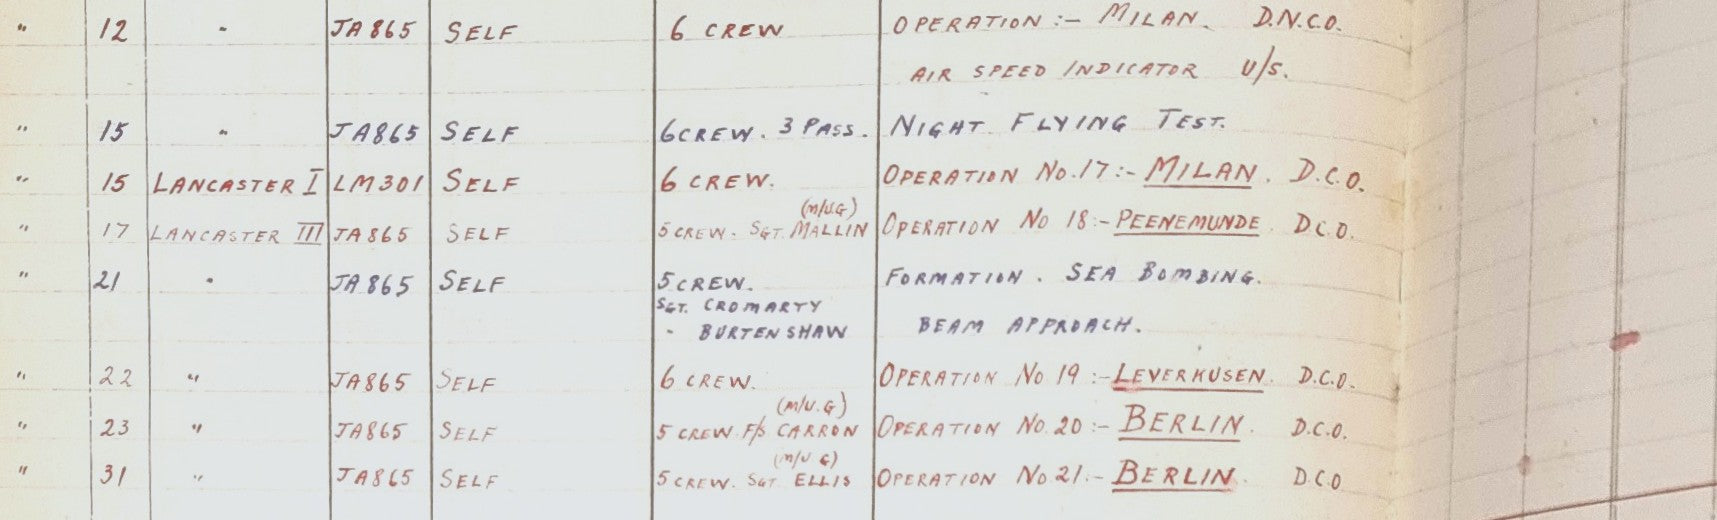 " 12 " JA865 SELF 6 CREW OPERATION :- MILAN. D.N.C.O.
AIR SPEED INDICATOR U/S.
" 15 " JA865 SELF 6 CREW. 3 PASS. NIGHT FLYING TEST.
" 15 LANCASTER I LM301 SELF 6 CREW. OPERATION No. 17 :- MILAN. D.C.O.
(M/U.G)
" 17 LANCASTER III JA865 SELF 5 CREW. SGT. MALLIN OPERATION No 18 :- PEENEMUNDE. D.C.O.
" 21 " JA865 SELF 5 CREW. FORMATION. SEA BOMBING.
SGT. CROMARTY
" BURTENSHAW BEAM APPROACH.
" 22 " JA865 SELF 6 CREW. OPERATION No 19 :- LEVERKUSEN. D.C.O.
(M/U.G)
" 23 " JA865 SELF 5 CREW F/S CARRON OPERATION No. 20 :- BERLIN. D.C.O.
(M/U G)
" 31 " JA865 SELF 5 CREW. SGT ELLIS OPERATION No 21 :- BERLIN. D.C.O